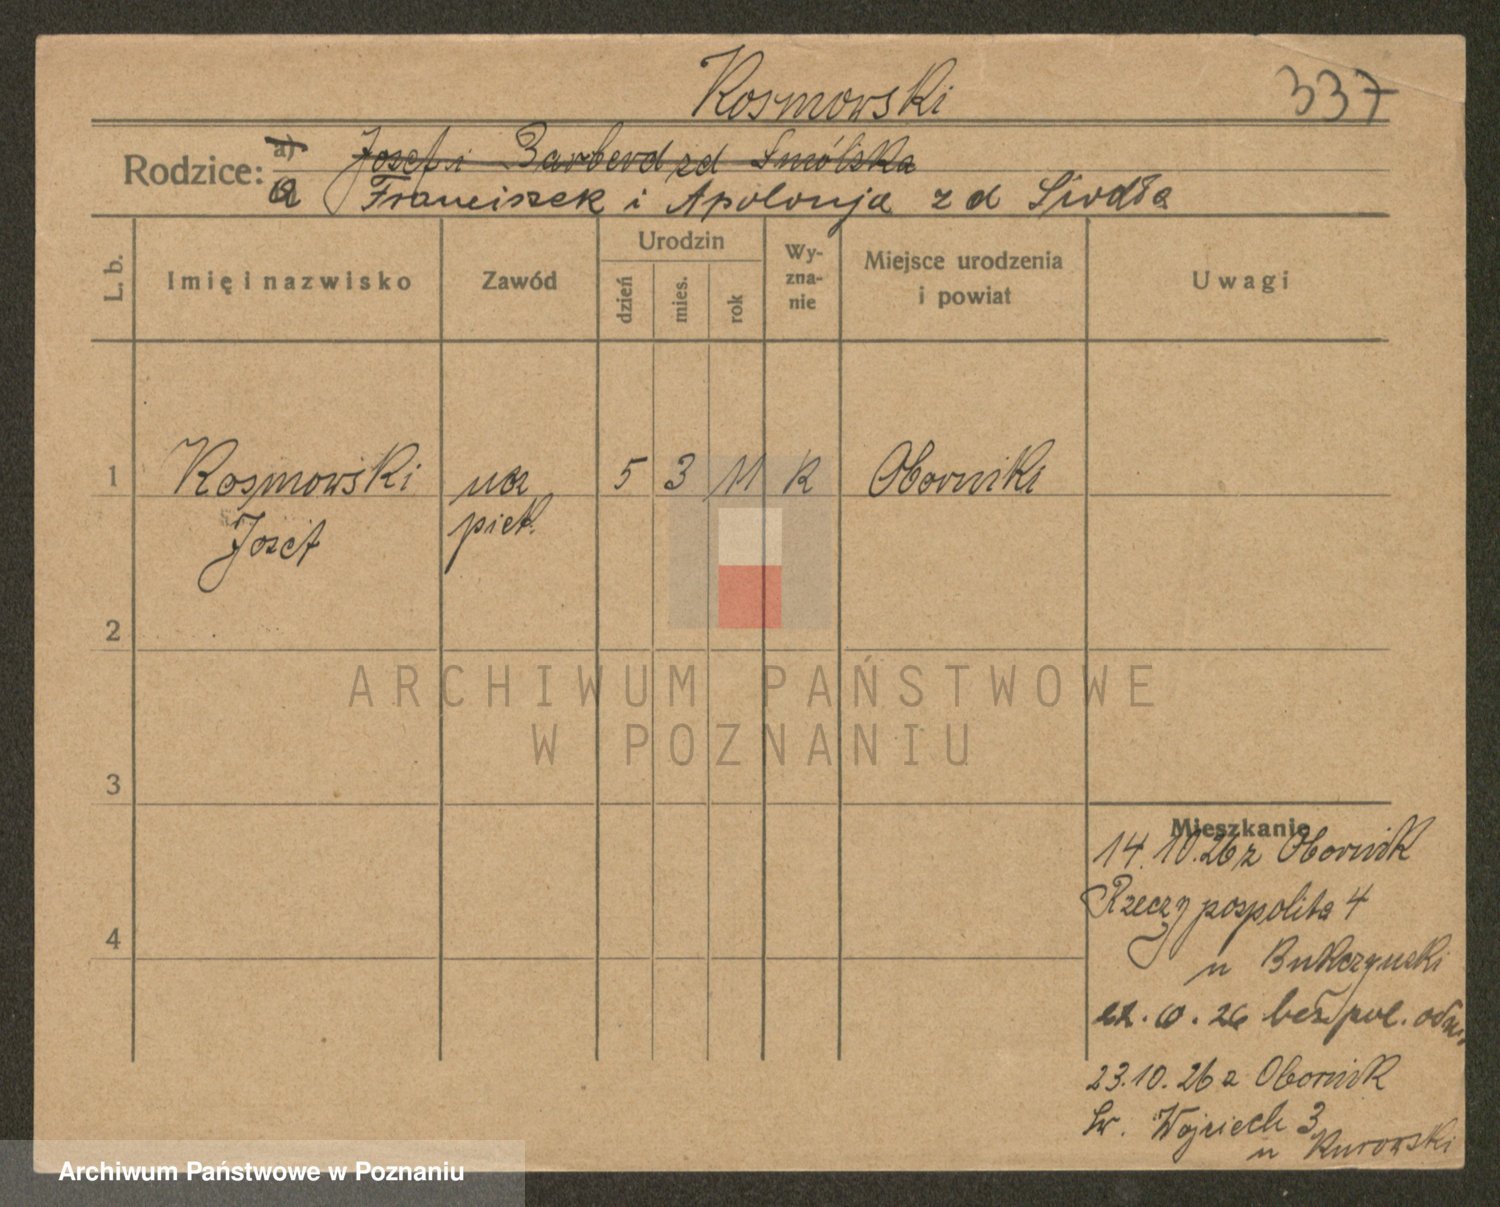 Kosmowski
337
Rodzice: a) Josef i Barberd zd Smólska
a Franciszek i Apolonja z d Siodła
L. b.
Imię i nazwisko
Zawód
Urodzin
dzień
mies.
rok
Wy-
zna-
nie
Miejsce urodzenia
i powiat
Uwagi
1 Kosmowski ucz 5 3 11 K Oborniki
Josef piek.
2
3
4
Mieszkanie
14.10.26 z Obornik
Rzeczypospolita 4
u Bukczynski
26 bez pol. odm.
23.10.26 z Obornik
Św. Wojciech 3
u Kurowski
ARCHIWUM PAŃSTWOWE
W POZNANIU
Archiwum Państwowe w Poznaniu